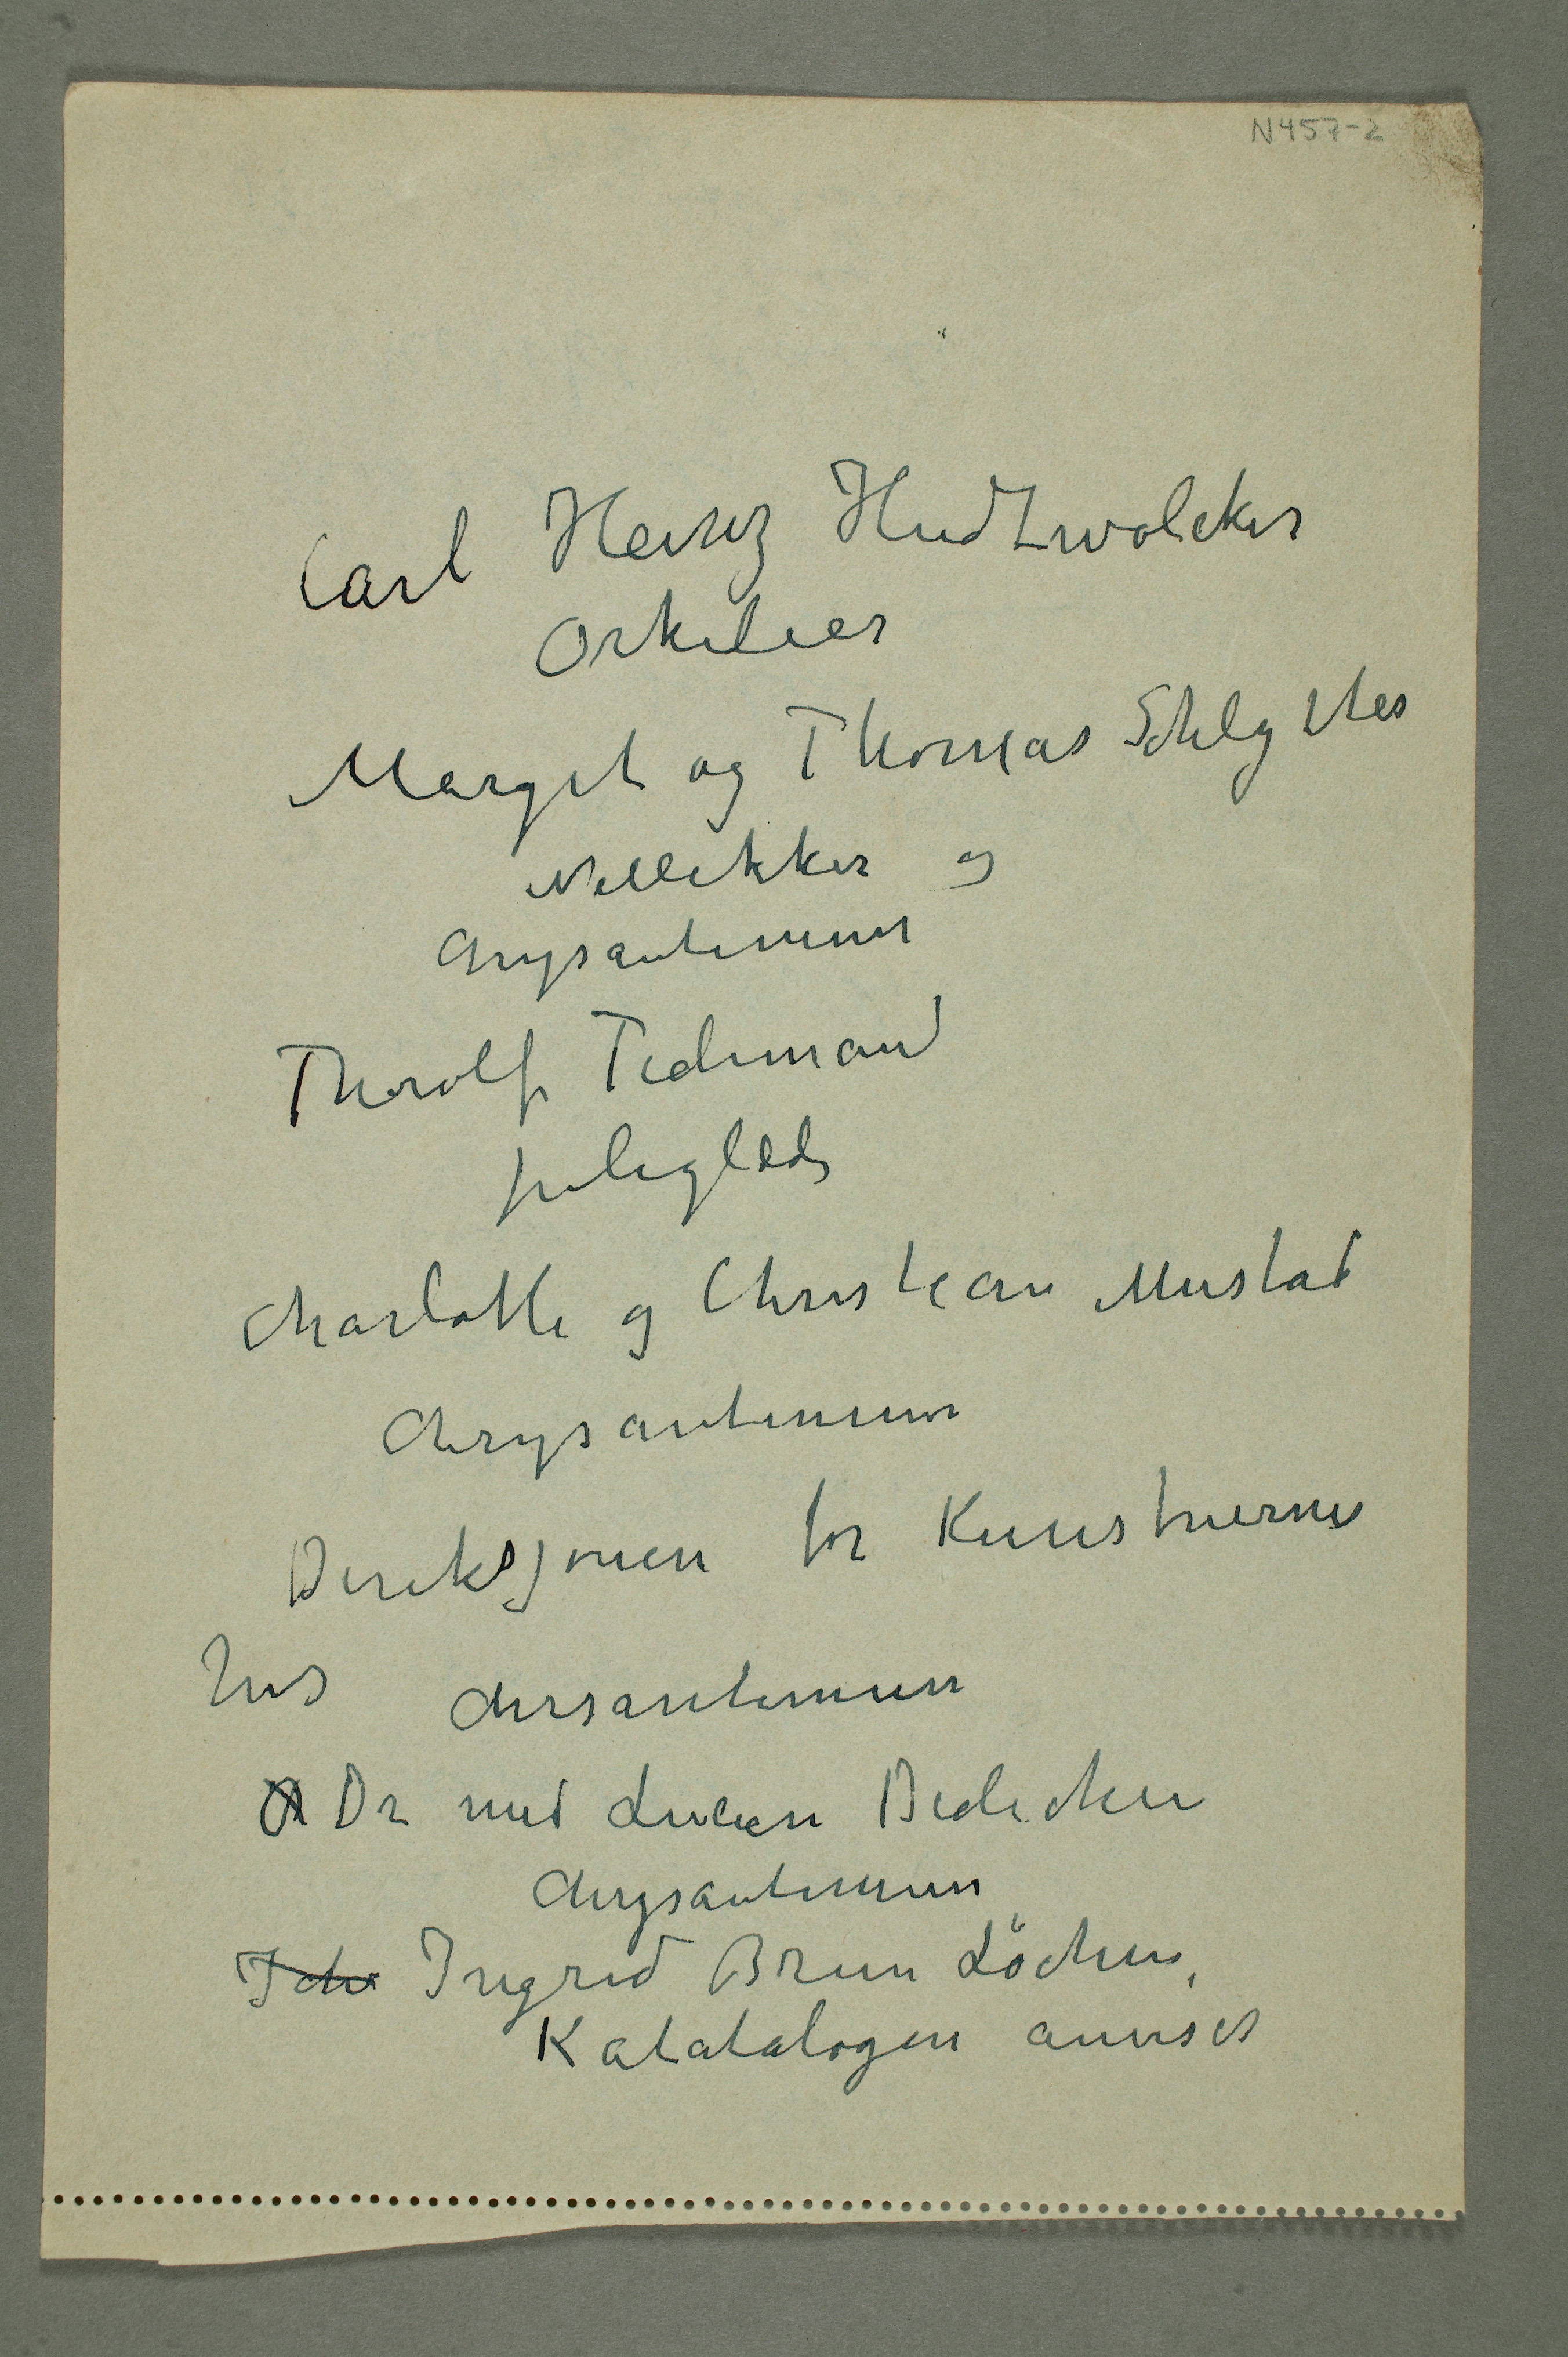 N457-2
Carl Heinz Hudtwolcker
Orkideer
Margit og Thomas
Nellikker og
Chrysantemum
Thorolf Tidemand
juleglæde
Charlotte og Christian Mustad
Chrysantemum
Direksjonen for Kunstnernes
hus Chrsantemum
Dr med Lucien Dedichen
Chrysantemum
Ingrid Brun Löchen,
Katatalogen